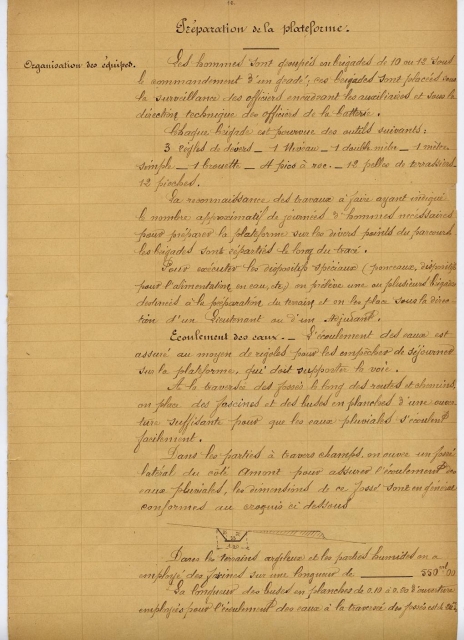 Préparation de la plateforme.
Organisation des équipes.
Les hommes sont groupés en brigades de 10 ou 12 sous
le commandement d'un gradé; ces brigades sont placées sous
la surveillance des officiers encadrant les auxiliaires et sous la
direction technique des officiers de la batterie.
Chaque brigade est pourvue des outils suivants:
3 règles de dévers _ 1 Niveau _ 1 double mètre _ 1 mètre
simple _ 1 brouette _ 4 pics à roc. _ 12 pelles de terrassiers
12 pioches.
La reconnaissance des travaux à faire ayant indiqué
le nombre approximatif de journées d'hommes nécessaires
pour préparer la plateforme sur les divers points du parcours
les brigades sont réparties le long du tracé.
Pour exécuter les dispositifs spéciaux (ponceaux, dispositifs
pour l'alimentation en eau, etc) on prélève une ou plusieurs brigades
destinées à la préparation du terrain et on les place sous la direc-
tion d'un Lieutenant ou d'un Adjudant.
Ecoulement des eaux. _ L'écoulement des eaux est
assuré au moyen de rigoles pour les empêcher de séjourner
sur la plateforme, qui doit supporter la voie.
A la traversée des fossés le long des routes et chemins,
on place des fascines et des buses en planches d'une ouver-
ture suffisante pour que les eaux pluviales s'écoulent
facilement.
Dans les parties à travers champs, on ouvre un fossé
latéral du côté Amont pour assurer l'écoulement des
eaux pluviales, les dimensions de ce fossé sont en général
conformes au croquis ci dessous
Dans les terrains argileux et les parties humides on a
employé des fascines sur une longueur de _____ 550 m 00
La longueur des buses en planches de 0.10 à 0.20 d'ouverture
employées pour l'écoulement des eaux à la traversée des fossés est de